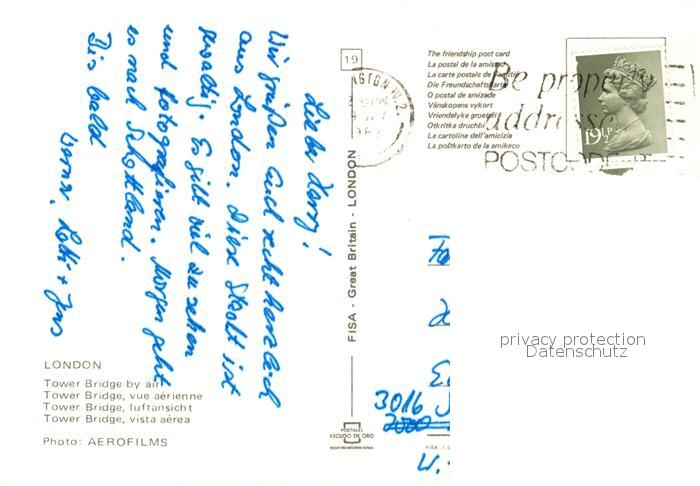 Liebe Harry!
Wir grüßen Euch recht herzlich
aus London. Diese Stadt ist
gewaltig. Es gibt viel zu sehen
und fotografieren. Morgen geht
es nach Schottland.
Bis bald
Lotti + Jens
LONDON
Tower Bridge by air
Tower Bridge, vue aérienne
Tower Bridge, luftansicht
Tower Bridge, vista aérea
Photo: AEROFILMS
19
FISA - Great Britain - LONDON
POSTALES
ESCUDO DE ORO
The friendship post card
La postal de la amistad
La carte postale de l'amitié
Die Freundschaftskarte
O postal de amizade
Vänskapens vykort
Vriendelyke groeten
Otkritka druchbi
La cartolina dell'amicizia
La poŝtkarto de la amikeco
Be proper
addresse
POSTCODE
19½P
3016
privacy protection
Datenschutz